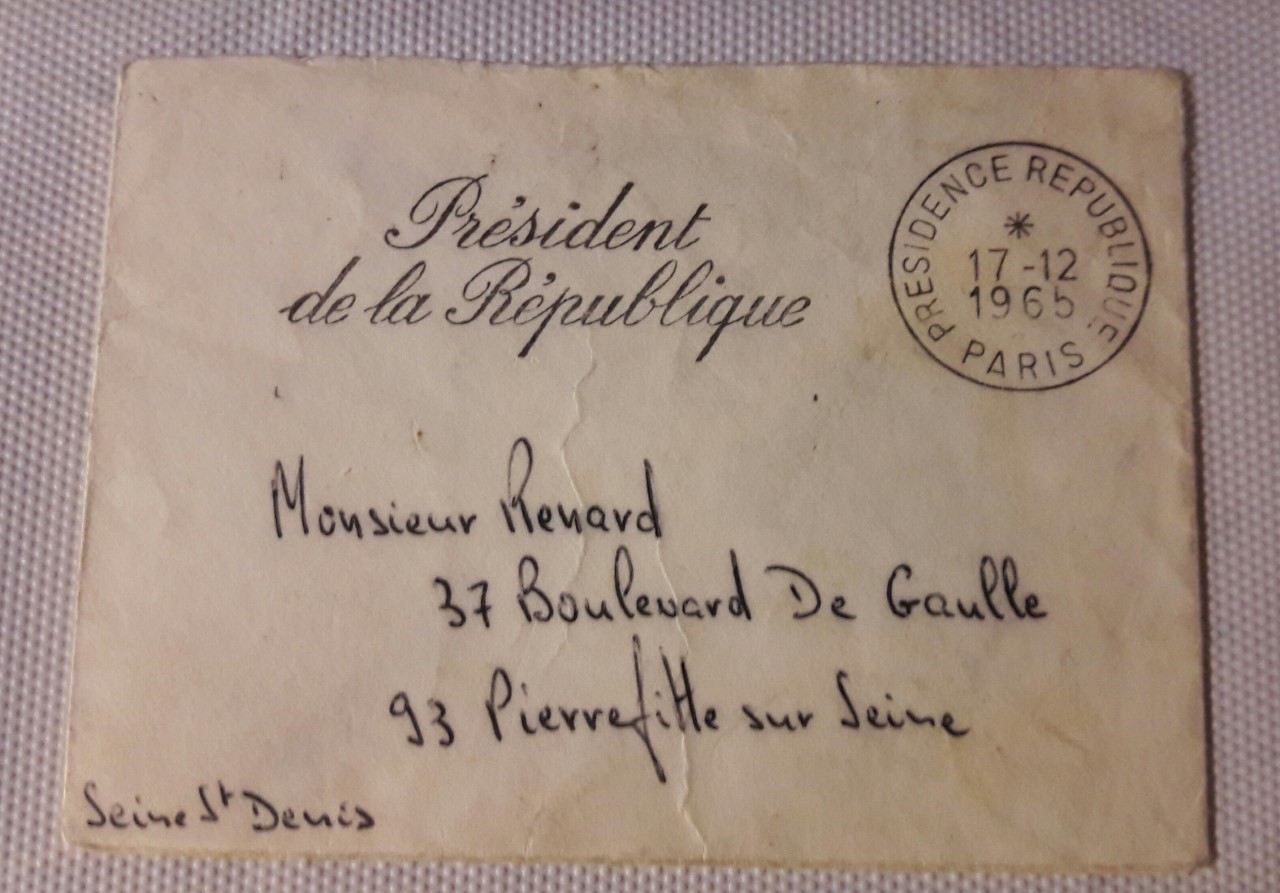 Président
de la République
PRESIDENCE REPUBLIQUE
*
17-12
1965
PARIS
Monsieur Renard
37 Boulevard De Gaulle
93 Pierrefitte sur Seine
Seine St Denis